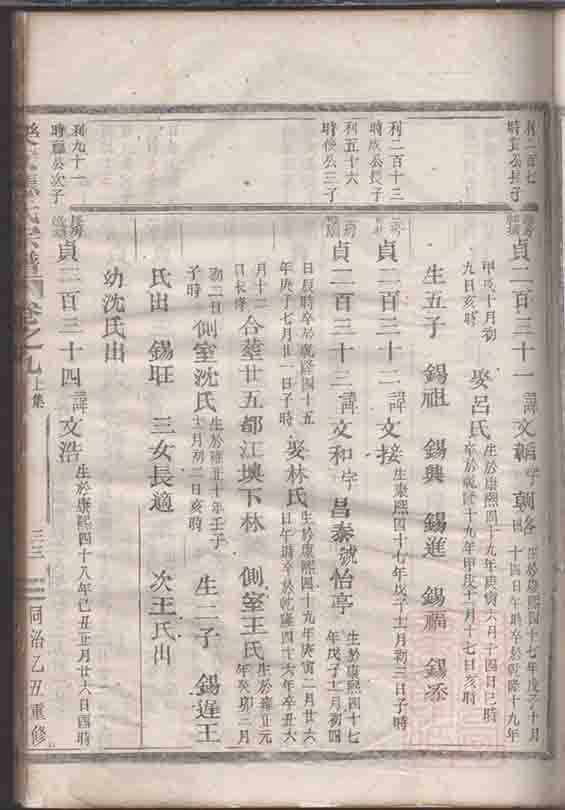 利二百七
時宜公長子
貞二百三十一 諱文縮字朝各 生於康熙四十七年戊子十月
十四日午時卒於乾隆十九年
甲戌十月初
九日亥時 娶呂氏 生於康熙四十九年庚寅六月十四日巳時
卒於乾隆十九年甲戌十一月十七日亥時
生五子 錫祖 錫興 錫進 錫福 錫添
利二百十三
時成公長子
貞二百三十二 諱文接 生康熙四十七年戊子十一月初三日子時
利五十六
時倏公三子
貞二百三十三 諱文和字昌泰號怡亭 生於康熙四十七
年戊子十二月初四
日辰時卒於乾隆四十五
年庚子七月廿一日子時 娶林氏 生於康熙四十九年庚寅二月廿六
日午時卒於乾隆四十六年辛丑六
月十二
日長 合塟廿五都江墺下林 側室王氏 生於雍正元
年癸卯三月
初二日
子時 側室沈氏 生於雍正十年壬子
十一月初二日亥時 生二子 錫遲王
氏出 錫旺 三女長適 次王氏出
幼沈氏出
利九十一
時疄公次子
貞二百三十四 諱文浩 生於康熙四十八年己丑正月廿六日酉時
氏宗譜 卷之九 上集 三三 同治乙丑重修